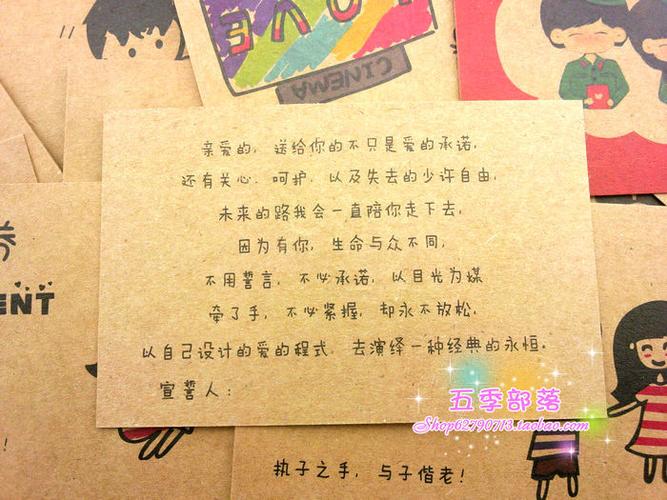 LOVE
CINEMA
亲爱的，送给你的不只是爱的承诺，
还有关心、呵护，以及失去的少许自由，
未来的路我会一直陪你走下去，
因为有你，生命与众不同，
不用誓言，不必承诺，以目光为媒
牵了手，不必紧握，却永不放松，
以自己设计的爱的程式，去演绎一种经典的永恒。
宣誓人：
券
ENT
五季部落
Shop62790713.taobao.com
执子之手，与子偕老！